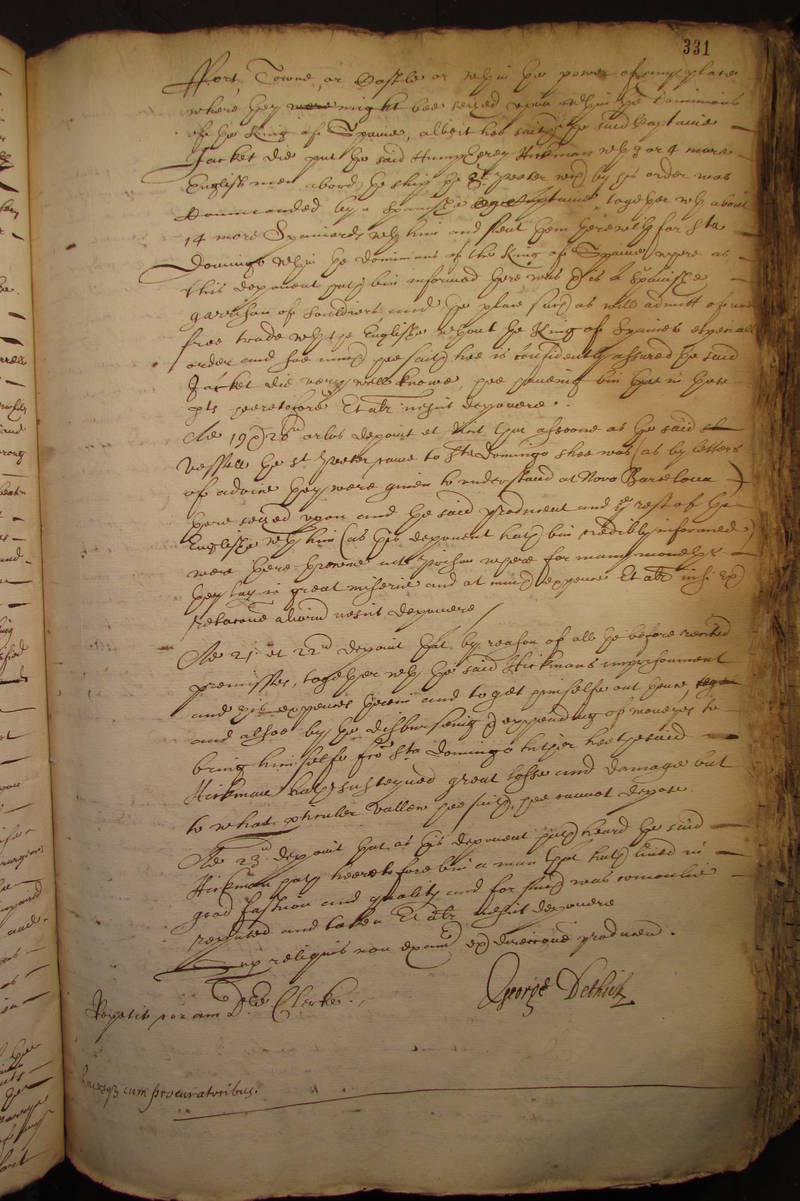 331
fort, Towne, or Castle or wthin the power of any place
where they might bee seized upon wthin the Dominions
of the King of Spaine, albeit hee saith the said Captaine
Jacket did put the said Humphrey Hickman wth 3 or 4 more
English men abord the ship the St Peeter wch by his order was
Commanded by a Spanishe Captaine together wth about
14 more Spaniards wth him and sent them therewith for Sta
Domingo wthin the dominions of the King of Spaine where as
this deponent hath bin informed there was is a Spanishe
garrison of souldiers and the place such as will admitt of noe
free trade wth the Englishe wthout the King of Spaines
order and soe much hee saith hee is confidently assured the said
Jacket did very well knowe, hee haveing bin in those
pts heretofore Et alr nescit deponere.
Ad 19 20um arlos deponit et dicit that assoone as the said
vessell the St Peeter came to Sta Domingo shee was (as by letters
of advice they were given to understand at Nova Barselona)
there seized upon and the said producent and the rest of the
Englishe wth him (as this deponent hath bin credibly informed)
were there throwne into prison where for many moneths
they lay in great miserie and at much expence Et alr
relacone aliorum nescit deponere
Ad 21 et 22um deponit that by reason of all the before recited
premisses, together wth the said Hickmans imprisonment
and his expences therein and to get himselfe out thence
and alsoe by the disbursing & expending of moneyes to
bring himselfe from Sta Domingo hither hee the said
Hickman hath susteyned great losse and damage but
to what pticuler vallew hee saith hee cannot depose.
Ad 23um deponit that as this deponent hath heard the said
Hickman hath heretofore bin a man that hath lived in
good fashion and quality and for such was comonlie
reputed and taken Et alr nescit deponere
ex reliquis non examd ex direccone producen.
George Dethick
Repetit coram Dre Clerke.
cum procuratoribus.